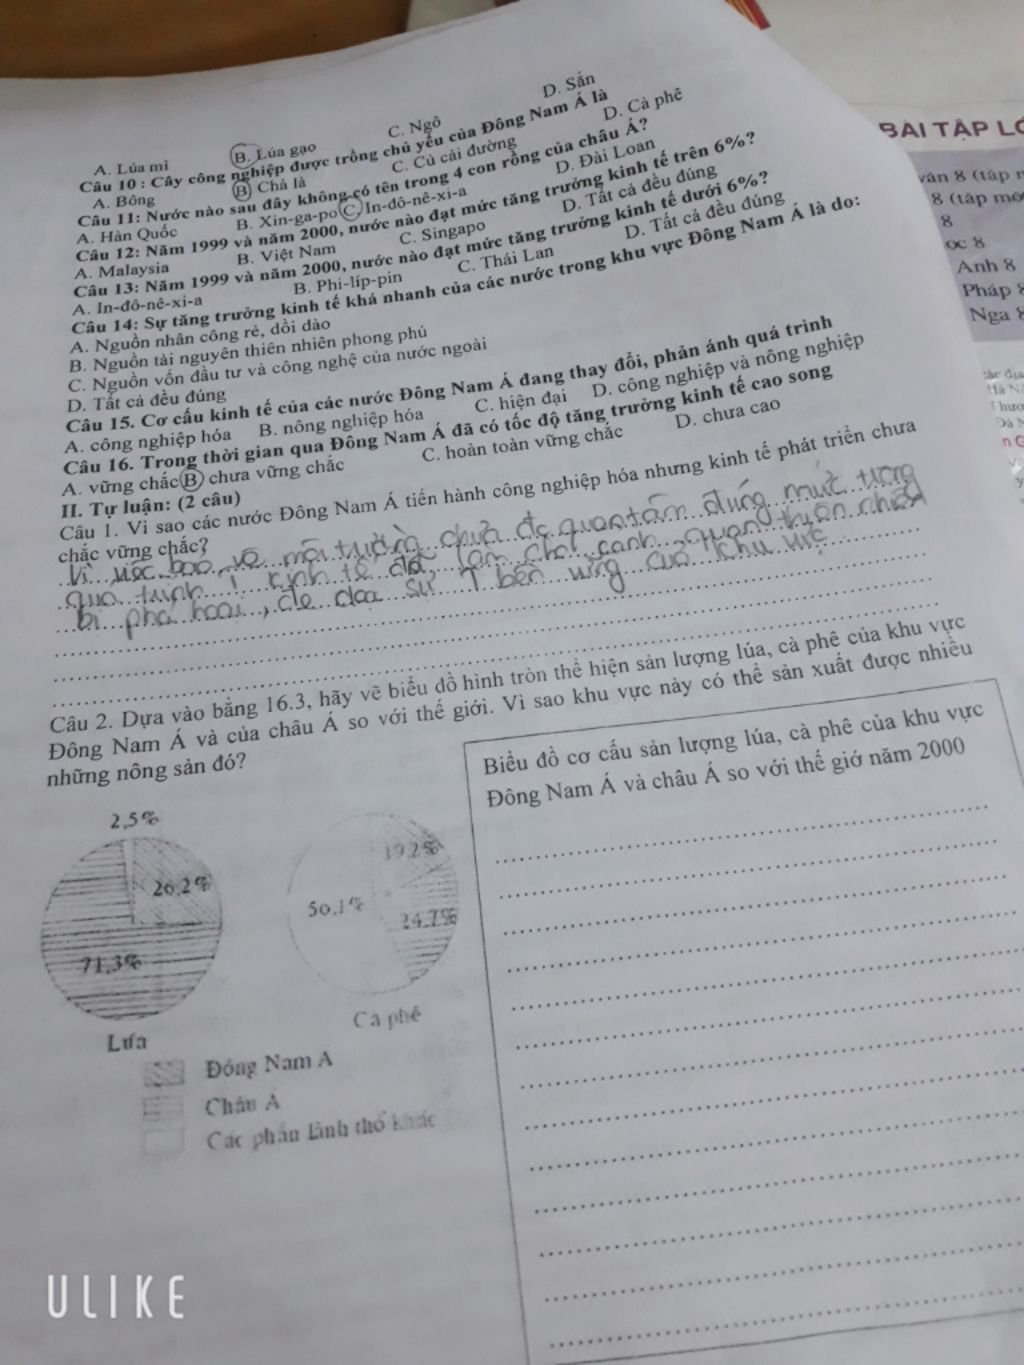 D. Sắn
A. Lúa mì B. Lúa gạo C. Ngô
Câu 10 : Cây công nghiệp được trồng chủ yếu của Đông Nam Á là
A. Bông B) Chà là C. Củ cải đường D. Cà phê
Câu 11: Nước nào sau đây không có tên trong 4 con rồng của châu Á?
A. Hàn Quốc B. Xin-ga-po C. In-đô-nê-xi-a D. Đài Loan
Câu 12: Năm 1999 và năm 2000, nước nào đạt mức tăng trưởng kinh tế trên 6%?
A. Malaysia B. Việt Nam C. Singapo D. Tất cả đều đúng
Câu 13: Năm 1999 và năm 2000, nước nào đạt mức tăng trưởng kinh tế dưới 6%?
A. In-đô-nê-xi-a B. Phi-líp-pin C. Thái Lan D. Tất cả đều đúng
Câu 14: Sự tăng trưởng kinh tế khá nhanh của các nước trong khu vực Đông Nam Á là do:
A. Nguồn nhân công rẻ, dồi dào
B. Nguồn tài nguyên thiên nhiên phong phú
C. Nguồn vốn đầu tư và công nghệ của nước ngoài
D. Tất cả đều đúng
Câu 15. Cơ cấu kinh tế của các nước Đông Nam Á đang thay đổi, phản ánh quá trình
A. công nghiệp hóa B. nông nghiệp hóa C. hiện đại D. công nghiệp và nông nghiệp
Câu 16. Trong thời gian qua Đông Nam Á đã có tốc độ tăng trưởng kinh tế cao song
A. vững chắc B) chưa vững chắc C. hoàn toàn vững chắc D. chưa cao
II. Tự luận: (2 câu)
Câu 1. Vì sao các nước Đông Nam Á tiến hành công nghiệp hóa nhưng kinh tế phát triển chưa
chắc vững chắc?
Vì việc bảo vệ môi trường chưa đc quan tâm đúng mức trong
quá trình kinh tế đã làm cho cảnh quan thiên nhiên
bị phá hoại, đe dọa sự bền vững của khu vực
Câu 2. Dựa vào bảng 16.3, hãy vẽ biểu đồ hình tròn thể hiện sản lượng lúa, cà phê của khu vực
Đông Nam Á và của châu Á so với thế giới. Vì sao khu vực này có thể sản xuất được nhiều
những nông sản đó?
Biểu đồ cơ cấu sản lượng lúa, cà phê của khu vực
Đông Nam Á và châu Á so với thế giớ năm 2000
2,5%
26,2%
71,3%
Lứa
19,2%
56,1%
24,7%
Cà phê
Đông Nam Á
Châu Á
Các phần lãnh thổ khác
BÀI TẬP LỚ
văn 8 (tập
8 (tập mộ
8
ọc 8
Anh 8
Pháp 8
Nga 8
ULIKE